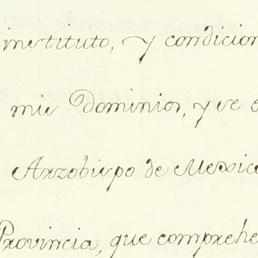 instituto, y condicion
mis Dominios, y se o
Arzobispo de Mexic
Provincia, que comprehe